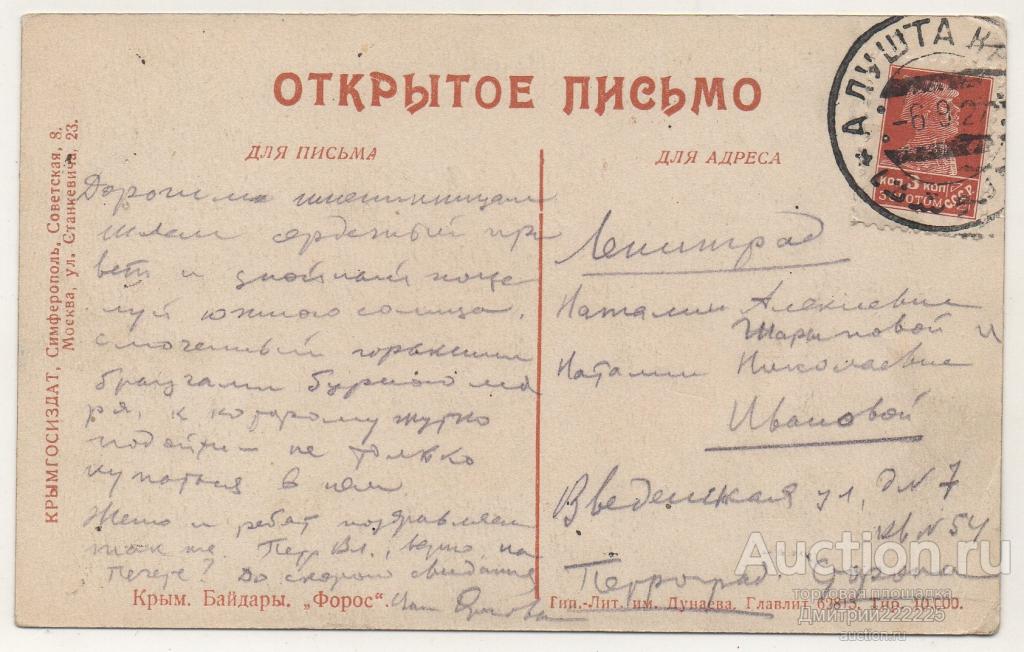 ОТКРЫТОЕ ПИСЬМО
ДЛЯ ПИСЬМА
Дорогим именинницам
шлем сердечный при
вет и знойный поце
луй южного солнца,
смоченный горькими
брызгами бурного мо
ря, к которому жутко
подойти не только
купаться в нем
Женю и ребят поздравляем
также. Петр Вл.,
До скорого свидания
ДЛЯ АДРЕСА
Ленинград
Наталии Алексеевне
Шарыповой и
Наталии Николаевне
Ивановой
Введенская ул, д № 7
кв № 54
Петроград. Сторона
АЛУШТА КР
-6 9 2
КОП 3 КОП
ЗОЛОТОМ СССР
КРЫМГОСИЗДАТ, Симферополь, Советская, 8.
Москва, ул. Станкевича, 23.
Крым. Байдары. „Форос“.
Гип.-Лит. им. Дунаева. Главлит 69815. Тир. 10.000.
Auction.ru
торговая площадка
Дмитрий222225
auction.ru